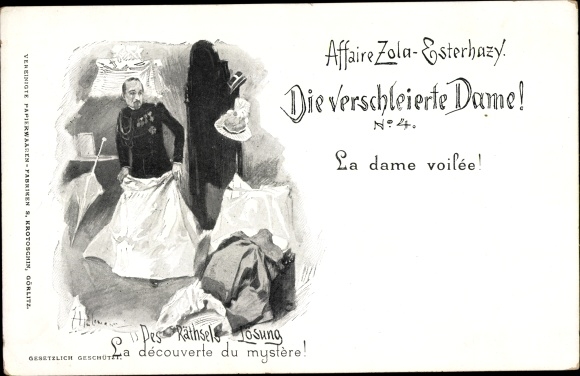 Affaire Zola-Esterhazy.
Die verschleierte Dame!
No. 4.
La dame voilée!
Des Räthsels Lösung
La découverte du mystère!
GESETZLICH GESCHÜTZT.
VEREINIGTE PAPIERWAAREN-FABRIKEN S. KROTOSCHIN, GÖRLITZ.